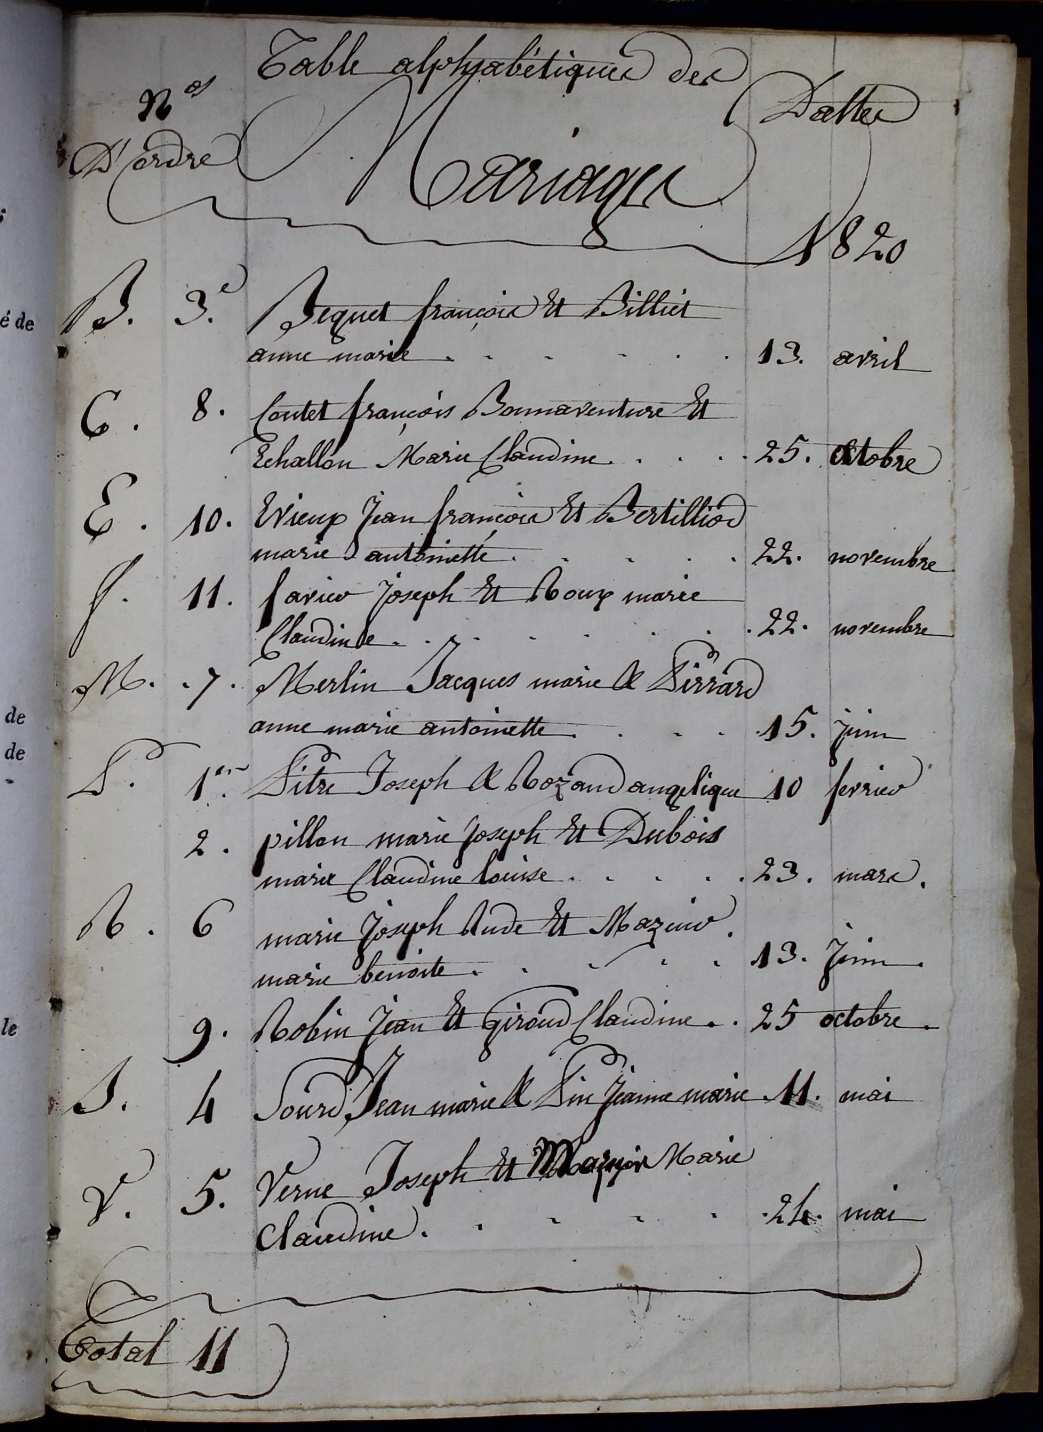 Table alphabétiques des
Nos
D'ordre
Dattes
Mariages
1820
B. 3e Bequet françois Et Billiet
anne marie . . . . . . 13. avril
C. 8. Coutet françois Bonnaventure Et
Echallon Marie Claudine. . . . 25. octobre
E. 10. Evieux Jean françois Et Bertilliod
marie antoinette . . . . . 22. novembre
f. 11. favier Joseph Et Roux marie
Claudine . . . . . . . 22. novembre
M. 7. Merlin Jacques marie & Pirrard
anne marie antoinette . . . . 15. juin
P. 1er Pitre Joseph & Rozand angelique 10 fevrier
2. pillon marie Joseph Et Dubois
marie Claudine louise . . . . . 23. mars.
R. 6 marie Joseph Rude Et Mazuir
marie benoite . . . . . 13. juin.
9. Robin Jean Et Giroud Claudine . . 25 octobre.
S. 4 Sourd Jean marie & Pin Jeanne marie 11. mai
V. 5. Verne Joseph Et Marie
Claudine . . . . . . 24. mai
Total 11
é de
de
de
le